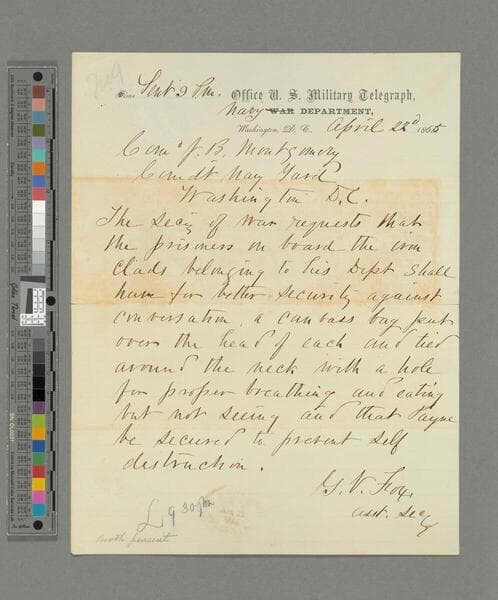 Time Sent 9 Pm. Office U. S. Military Telegraph,
Navy WAR DEPARTMENT,
Washington, D. C. April 22d 1865
Como J. B. Montgomery
Comdt Nay Yard
Washington D.C.
The Secy of War requests that
the prisoners on board the iron
clads belonging to his Dept shall
have for better security against
conversation, a canvass bag put
over the head of each and tied
around the neck with a hole
for proper breathing and eating
but not seeing and that Payne
be secured to prevent self
destruction.
G. V. Fox
asst. Secy
L 9 30 pm
Booth